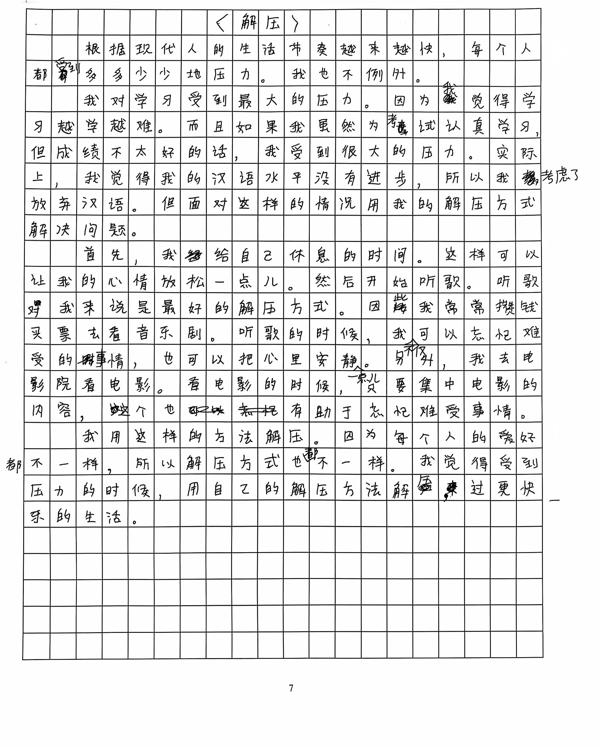 〈解压〉
根据现代人的生活节奏越来越快，每个人
都受到多多少少地压力。我也不例外。
我对学习受到最大的压力。因为我觉得学
习越学越难。而且如果我虽然为考试认真学习，
但成绩不太好的话，我受到很大的压力。实际
上，我觉得我的汉语水平没有进步，所以我考虑了
放弃汉语。但面对这样的情况用我的解压方式
解决问题。
首先，我给自己休息的时间。这样可以
让我的心情放松一点儿。然后开始听歌。听歌
对我来说是最好的解压方式。因此我常常攒钱
买票去看音乐剧。听歌的时候，我可以忘记难
受的事情，也可以把心里安静。另外，我去电
影院看电影。看电影的时候，只要集中电影的
内容，这个也有助于忘记难受事情。
我用这样的方法解压。因为每个人的爱好
都不一样，所以解压方式也都不一样。我觉得受到
压力的时候，用自己的解压方法解压，来过更快
乐的生活。
7